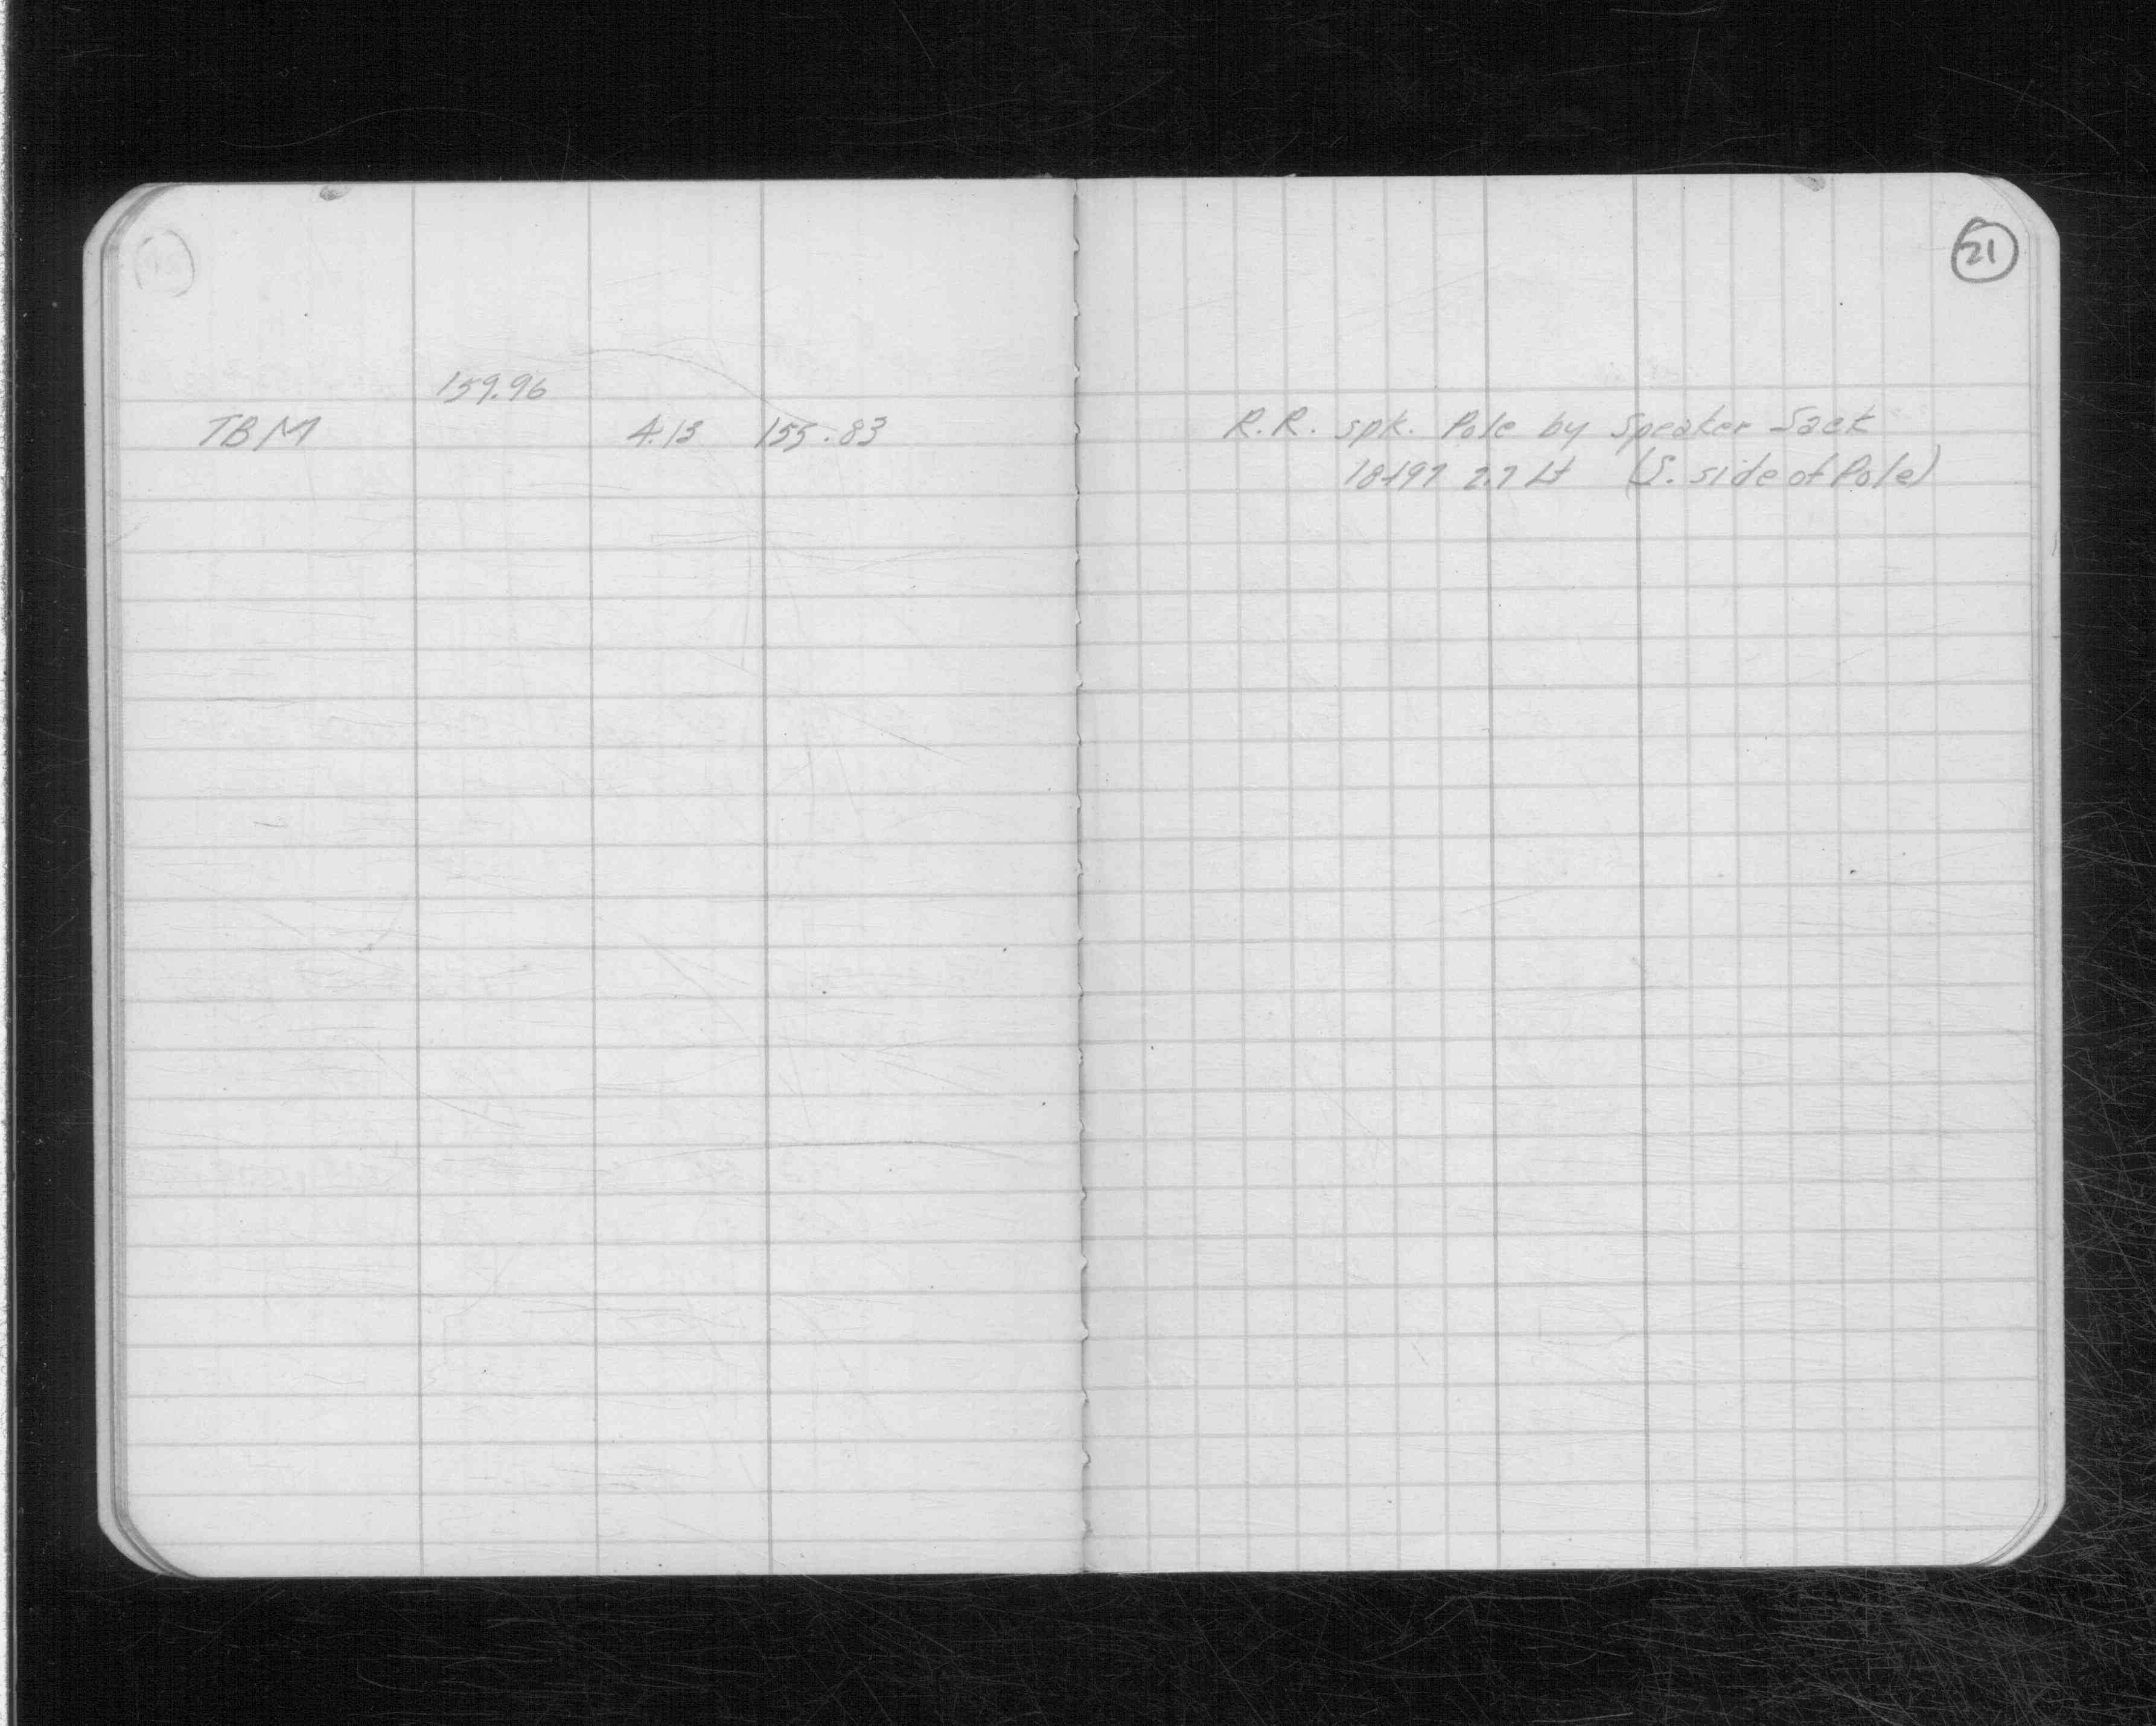 21
159.96
TBM 4.13 155.83
R.R. spk. Pole by Speaker Jack
18+97 27 Lt (S. side of Pole)